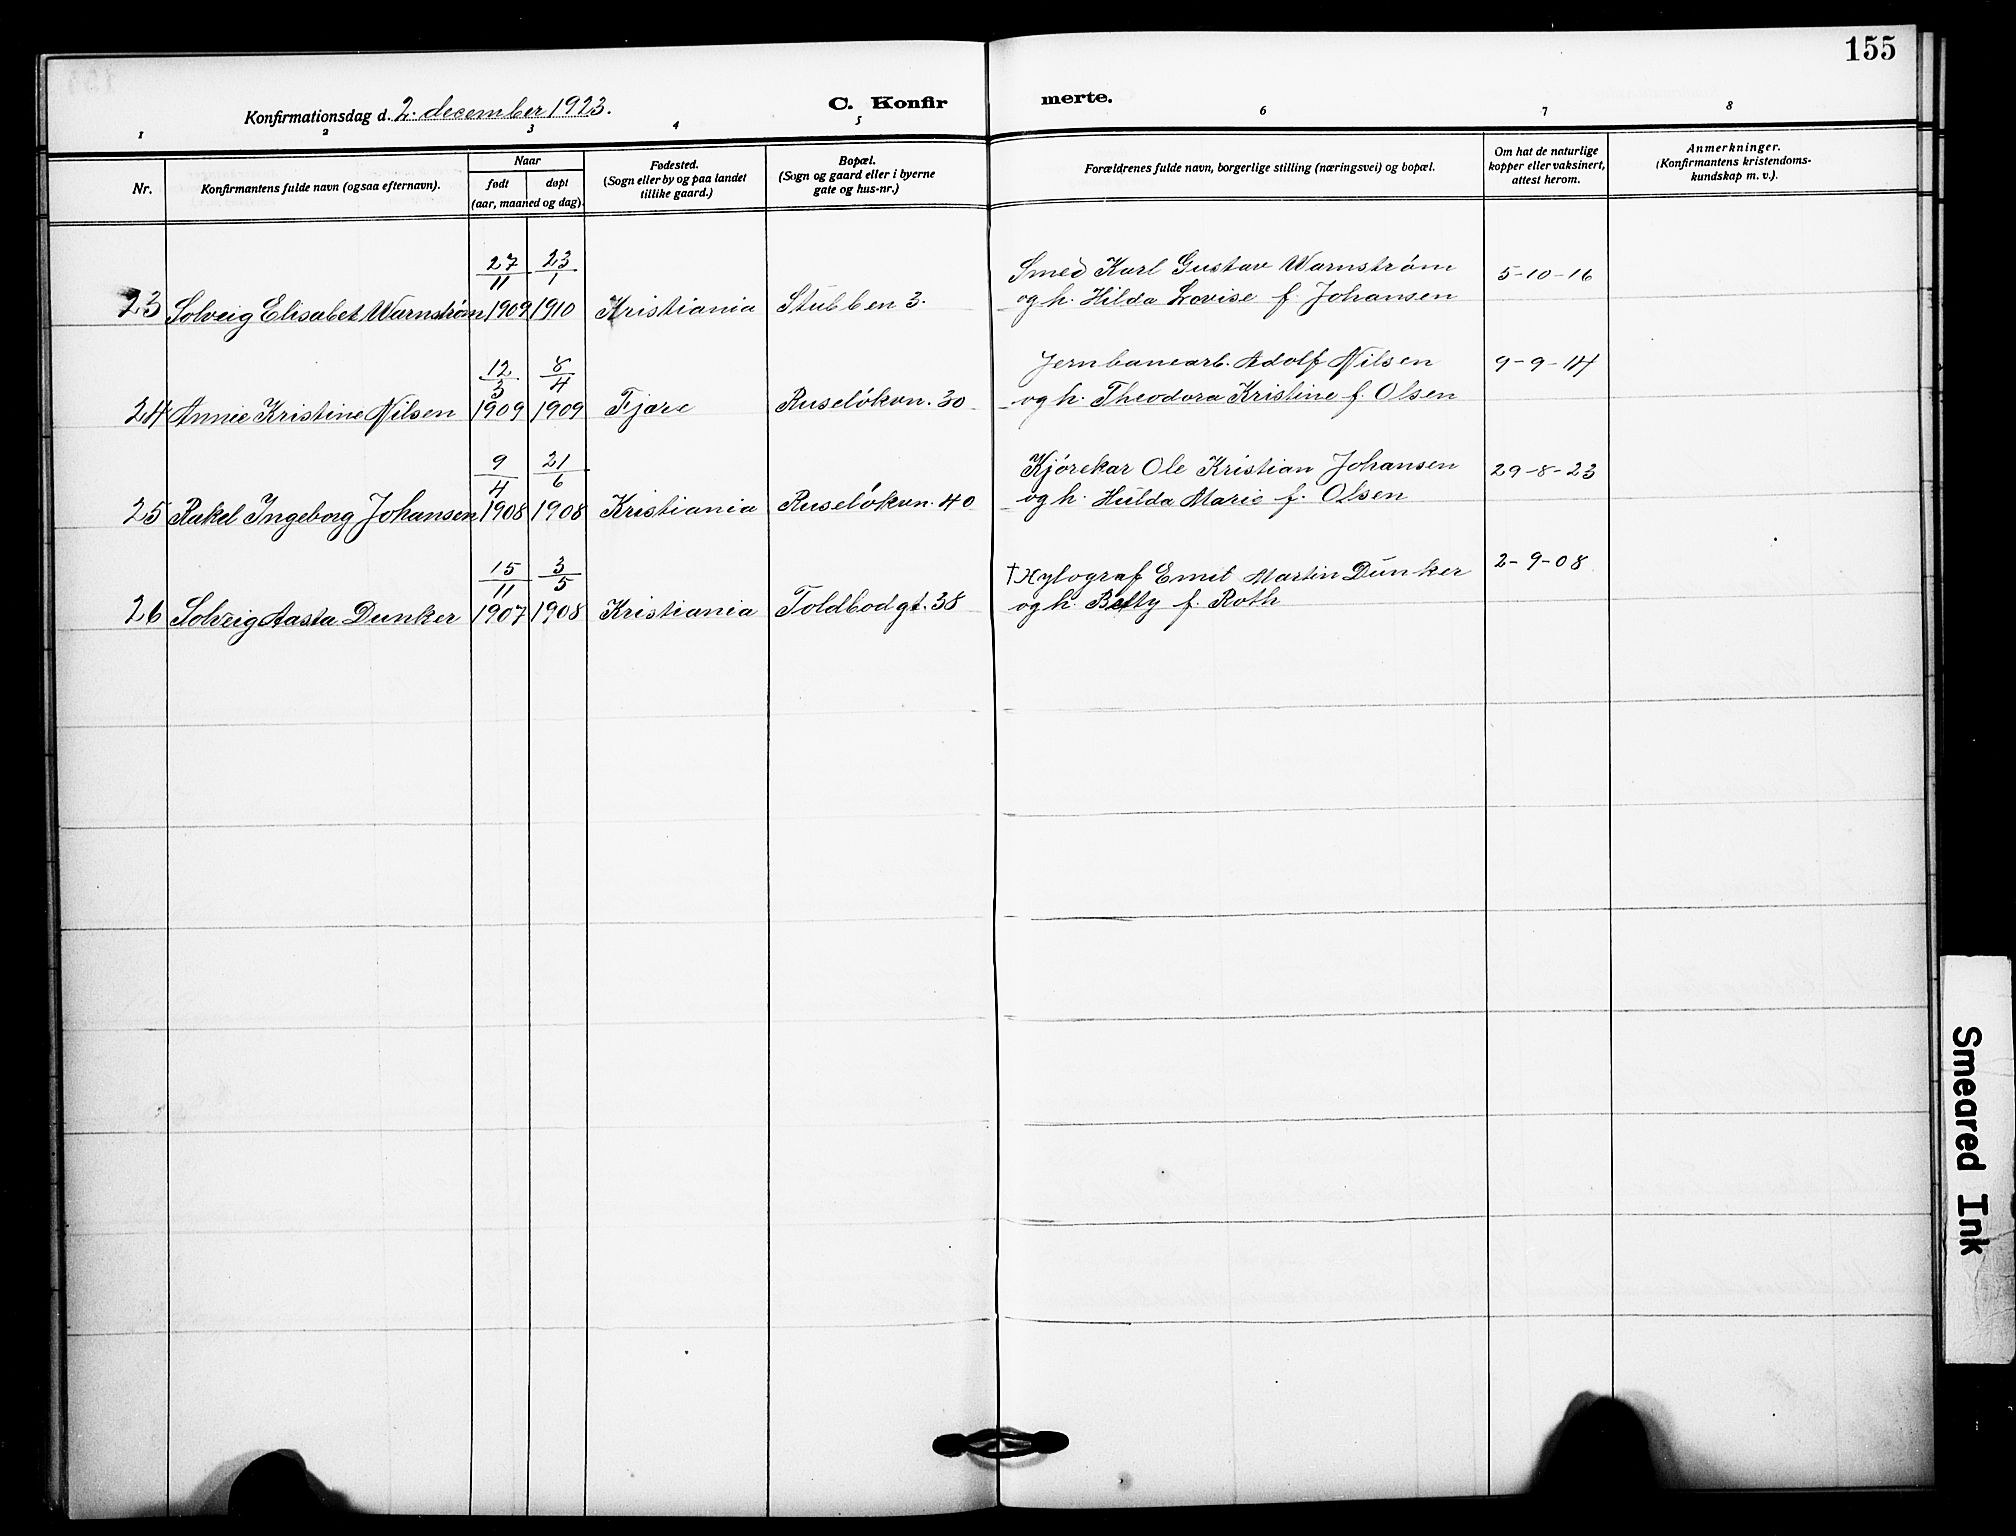 155
Konfirmationsdag d. 2. december 1923.
C. Konfir
merte.
1 2 3 4 5 6 7 8
Nr.
Konfirmantens fulde navn (ogsaa efternavn).
Naar
født
døpt
(aar, maaned og dag).
Fødested.
(Sogn eller by og paa landet
tillike gaard.)
Bopæl.
(Sogn og gaard eller i byerne
gate og hus-nr.)
Forældrenes fulde navn, borgerlige stilling (næringsvei) og bopæl.
Om hat de naturlige
kopper eller vaksinert,
attest herom.
Anmerkninger.
(Konfirmantens kristendoms-
kundskap m. v.).
27/11 23/1 Smed Karl Gustav Warnstrøm 5-10-16
23 Solveig Elisabet Warnstrøm 1909 1910 Kristiania Stubben 3. og h. Hilda Lovise f. Johansen
12/3 8/4 Jernbanearb. Adolf Nilsen 9-9-14
24 Annie Kristine Nilsen 1909 1909 Fjære Ruseløkvn. 30 og h. Theodora Kristine f. Olsen
9/4 21/6 Kjørekar Ole Kristian Johansen 29-8-23
25 Rakel Ingeborg Johansen 1908 1908 Kristiania Ruseløkvn. 40 og h. Hulda Marie f. Olsen
15/11 3/5 † Xylograf Emil Martin Dunker 2-9-08
26 Solveig Aasta Dunker 1907 1908 Kristiania Toldbodgt. 38 og h. Betty f. Roth
Smeared Ink